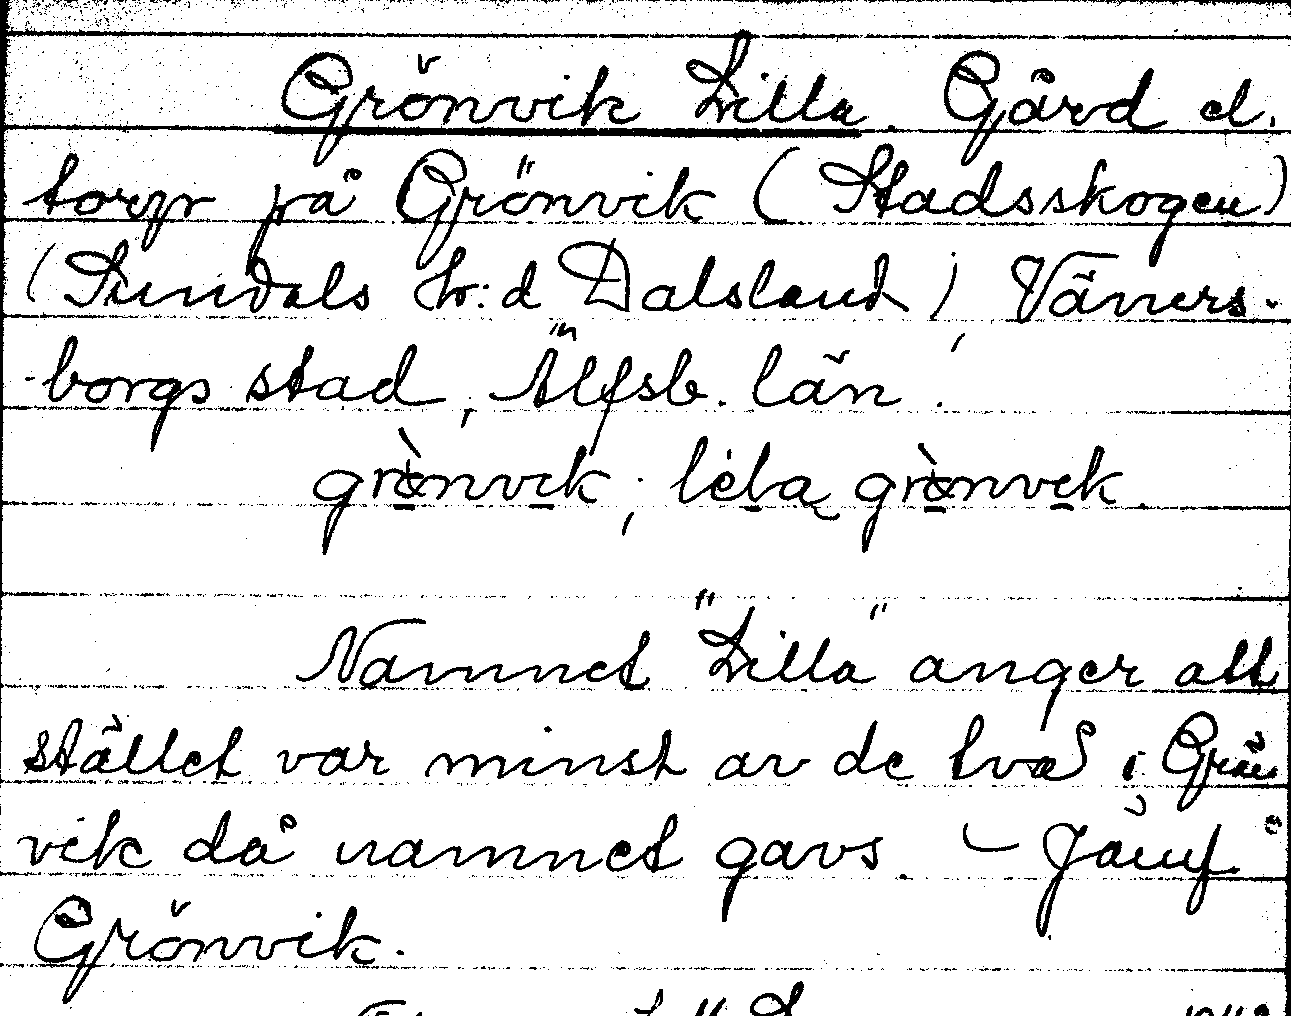 Grönvik Lilla. Gård el.
torp på Grönvik (Stadsskogen)
(Sundals hr:d Dalsland), Väners-
-borgs stad, Älfsb. län.
lilla
Namnet "Lilla" anger att
stället var minst av de två i Grön
vik då namnet gavs. – Jämf
Grönvik.